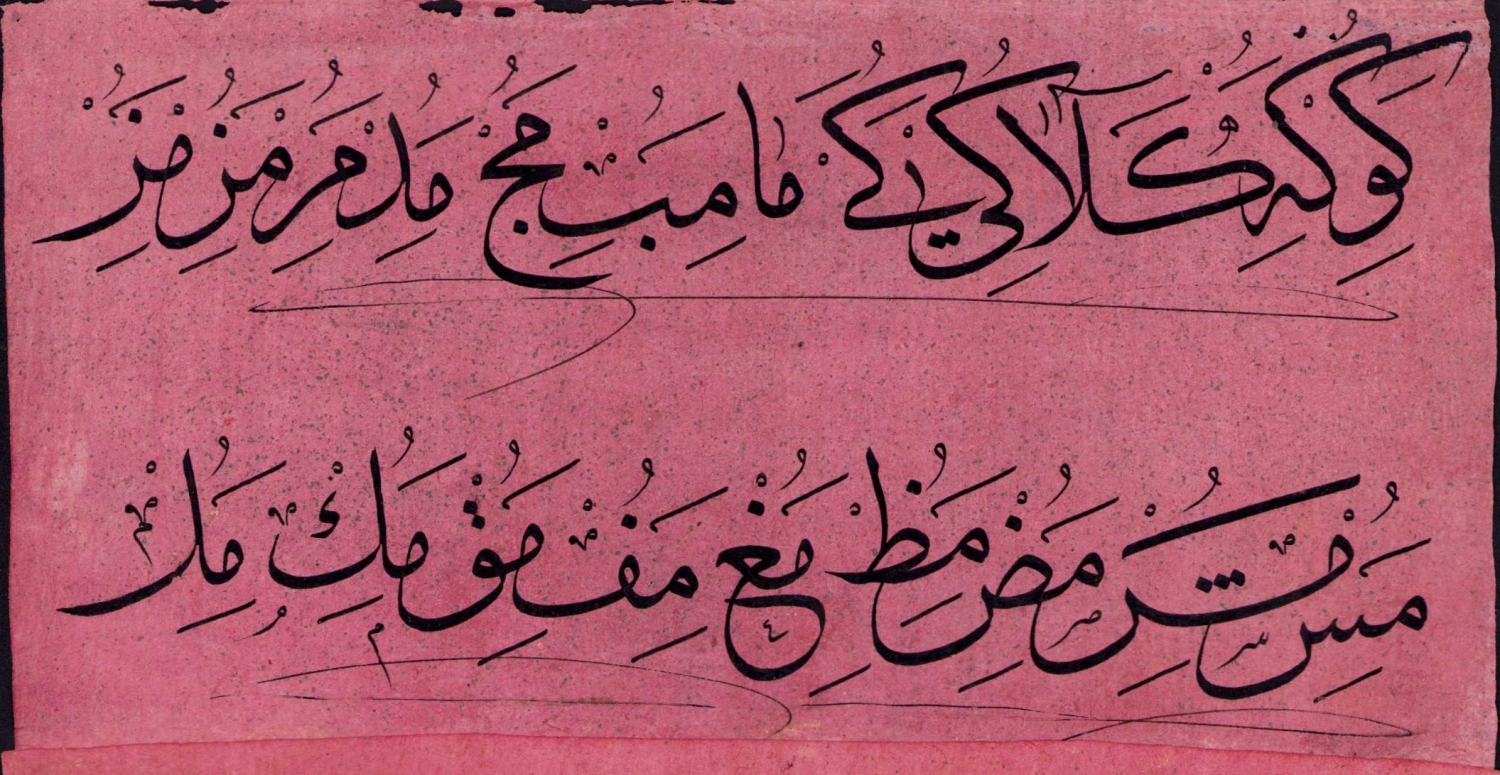 كو كه كلا كي كے ما مب مج مد مر مز مز
مس مش مض مظ مغ مف مق مك مل